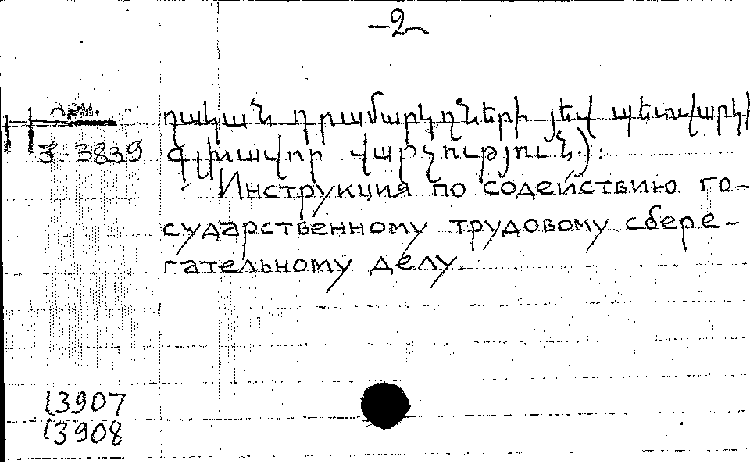 -2-
դական դրամարկղների յեվ պետվարկի
3 3839 գլխավոր վարչություն):
Инструкция по содействию го-
сударственному трудовому сбере-
гательному делу.
13907
13908